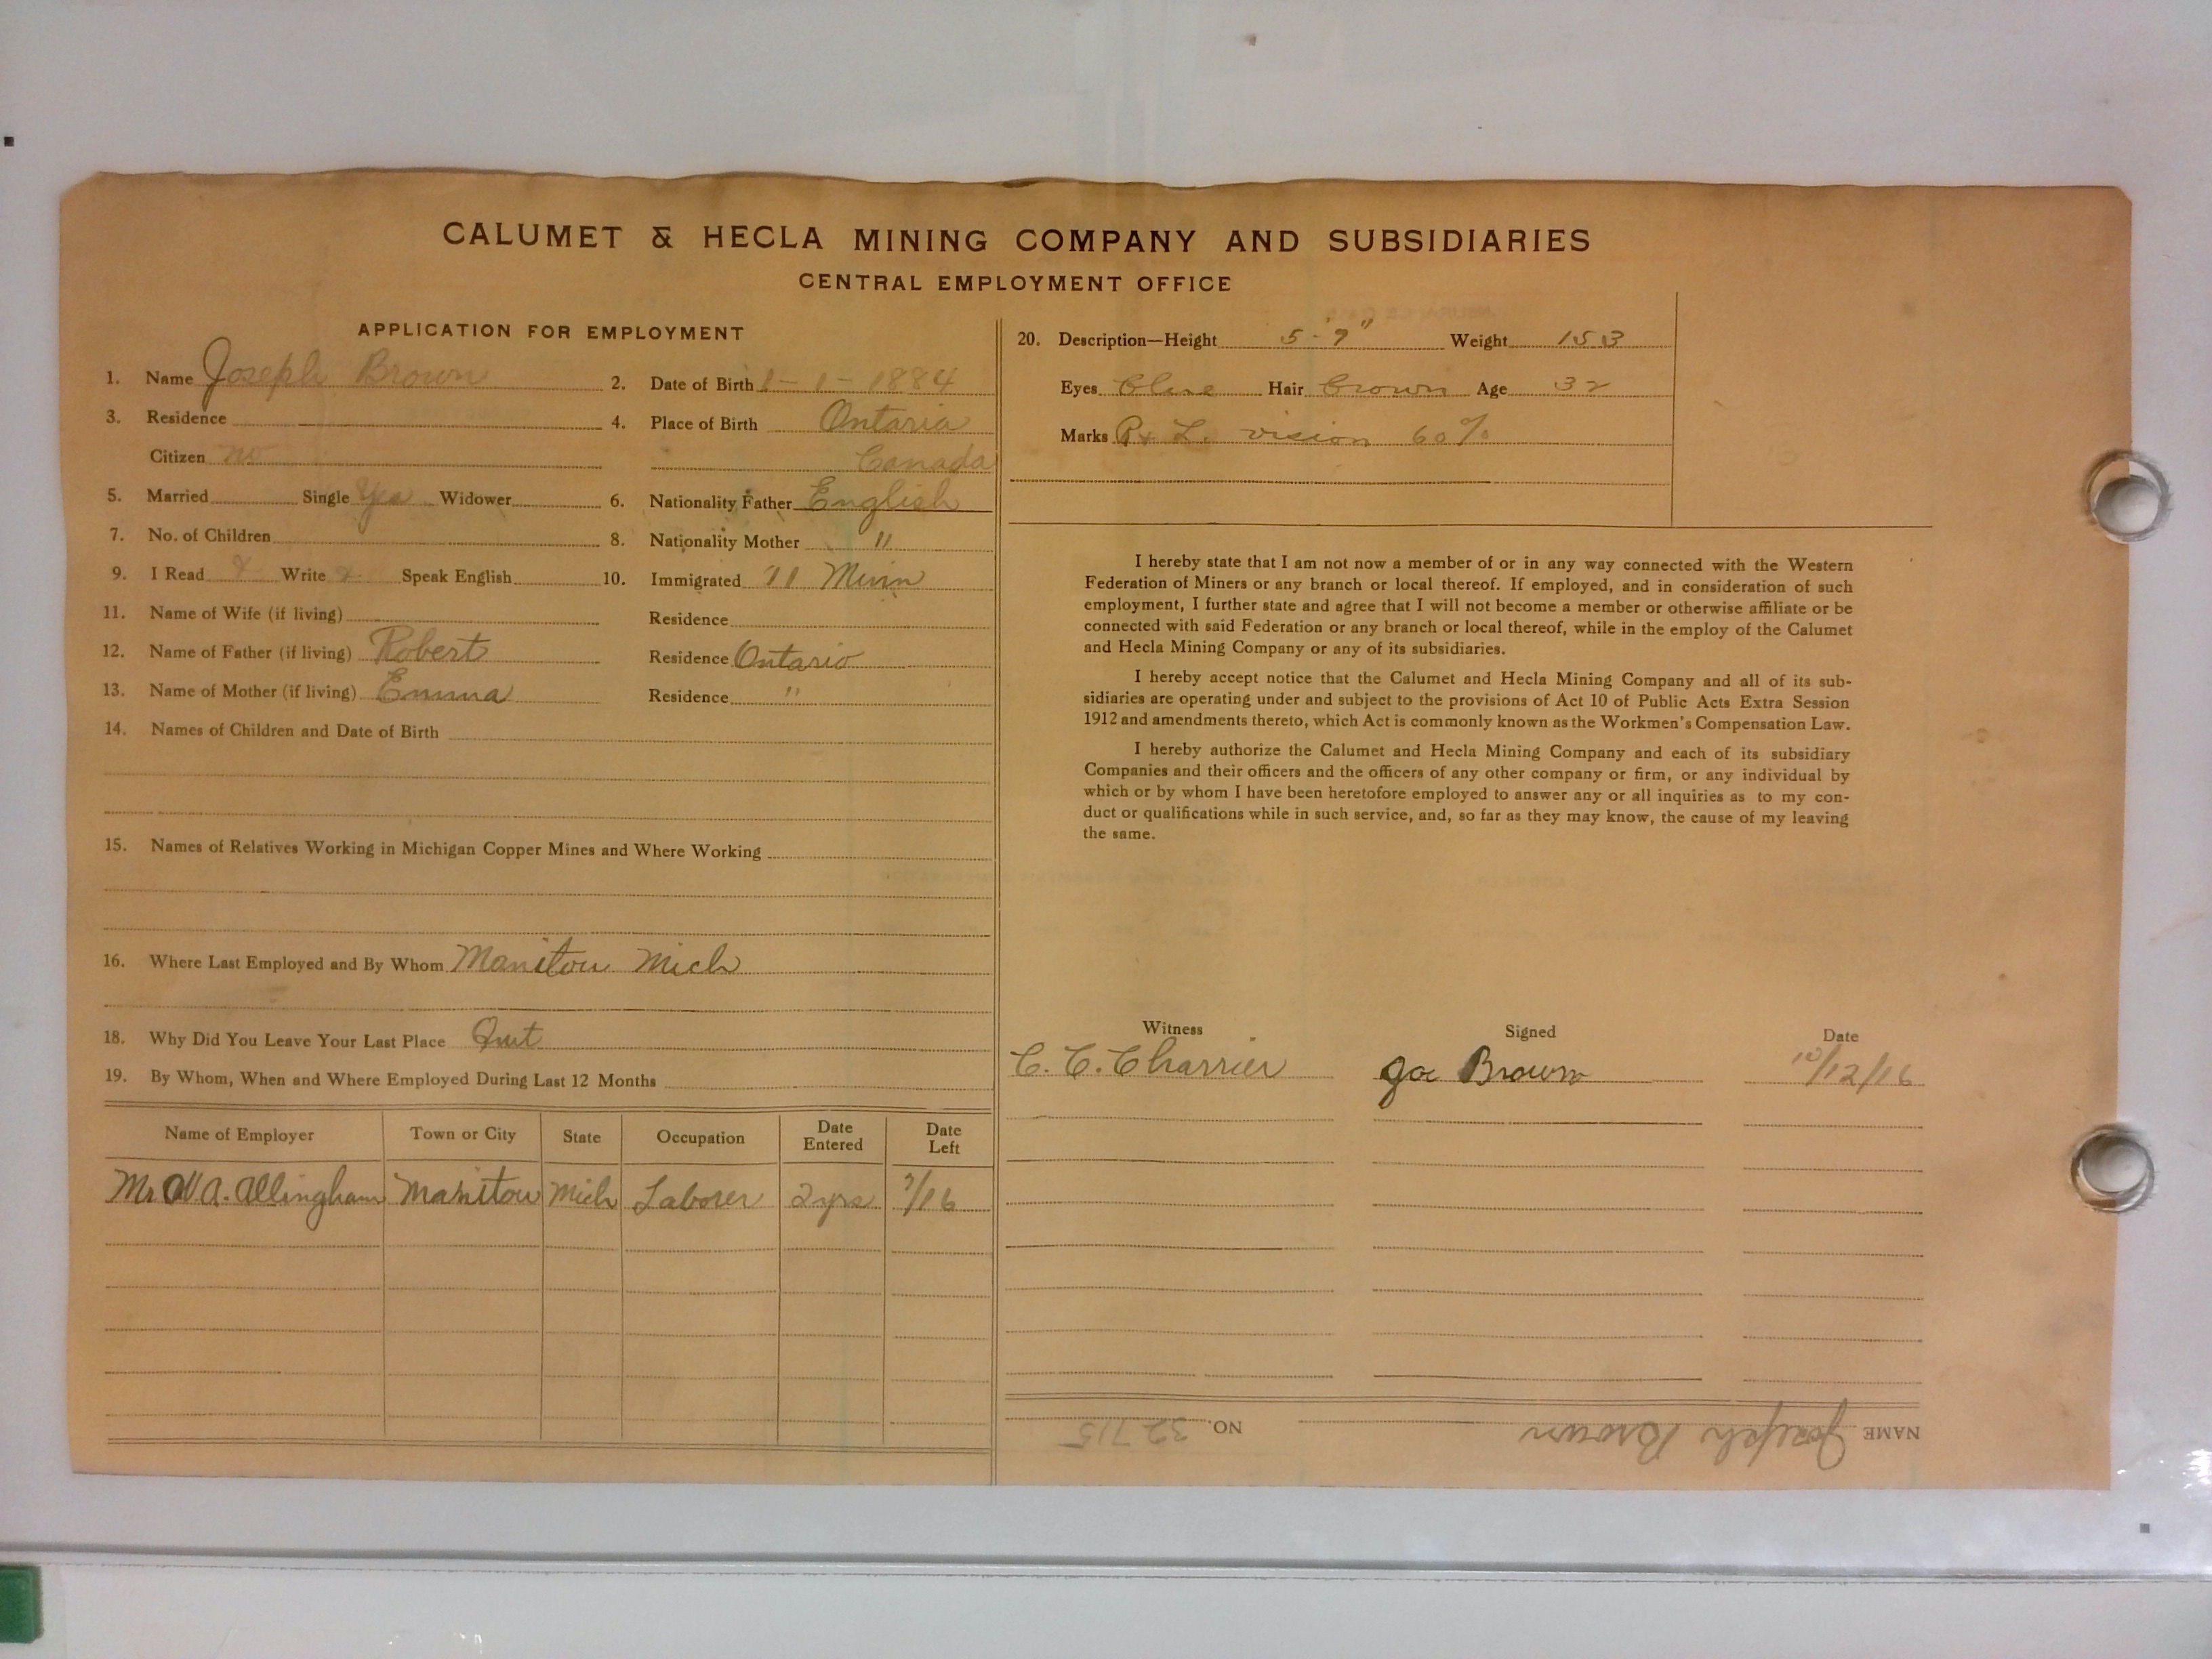 CALUMET & HECLA MINING COMPANY AND SUBSIDIARIES
CENTRAL EMPLOYMENT OFFICE
APPLICATION FOR EMPLOYMENT
1. Name Joseph Brown 2. Date of Birth 1-1-1884
3. Residence 4. Place of Birth Ontario
Citizen no Canada
5. Married Single Yes Widower 6. Nationality Father English
7. No. of Children 8. Nationality Mother "
9. I Read Write Speak English 10. Immigrated '11
11. Name of Wife (if living) Residence
12. Name of Father (if living) Robert Residence Ontario
13. Name of Mother (if living) Emma Residence "
14. Names of Children and Date of Birth
15. Names of Relatives Working in Michigan Copper Mines and Where Working
16. Where Last Employed and By Whom Manitou Mich
18. Why Did You Leave Your Last Place Quit
19. By Whom, When and Where Employed During Last 12 Months
Name of Employer Town or City State Occupation Date Entered Date Left
Mr. W. A. Allingham Manitou Mich Laborer 2 yrs /16
20. Description—Height 5-9" Weight 153
Eyes Blue Hair Brown Age 32
Marks R + L. vision 60%
I hereby state that I am not now a member of or in any way connected with the Western
Federation of Miners or any branch or local thereof. If employed, and in consideration of such
employment, I further state and agree that I will not become a member or otherwise affiliate or be
connected with said Federation or any branch or local thereof, while in the employ of the Calumet
and Hecla Mining Company or any of its subsidiaries.
I hereby accept notice that the Calumet and Hecla Mining Company and all of its sub-
sidiaries are operating under and subject to the provisions of Act 10 of Public Acts Extra Session
1912 and amendments thereto, which Act is commonly known as the Workmen's Compensation Law.
I hereby authorize the Calumet and Hecla Mining Company and each of its subsidiary
Companies and their officers and the officers of any other company or firm, or any individual by
which or by whom I have been heretofore employed to answer any or all inquiries as to my con-
duct or qualifications while in such service, and, so far as they may know, the cause of my leaving
the same.
Witness Signed Date
C. C. Charrier Joe Brown 10/12/16
NAME Joseph Brown NO. 32715